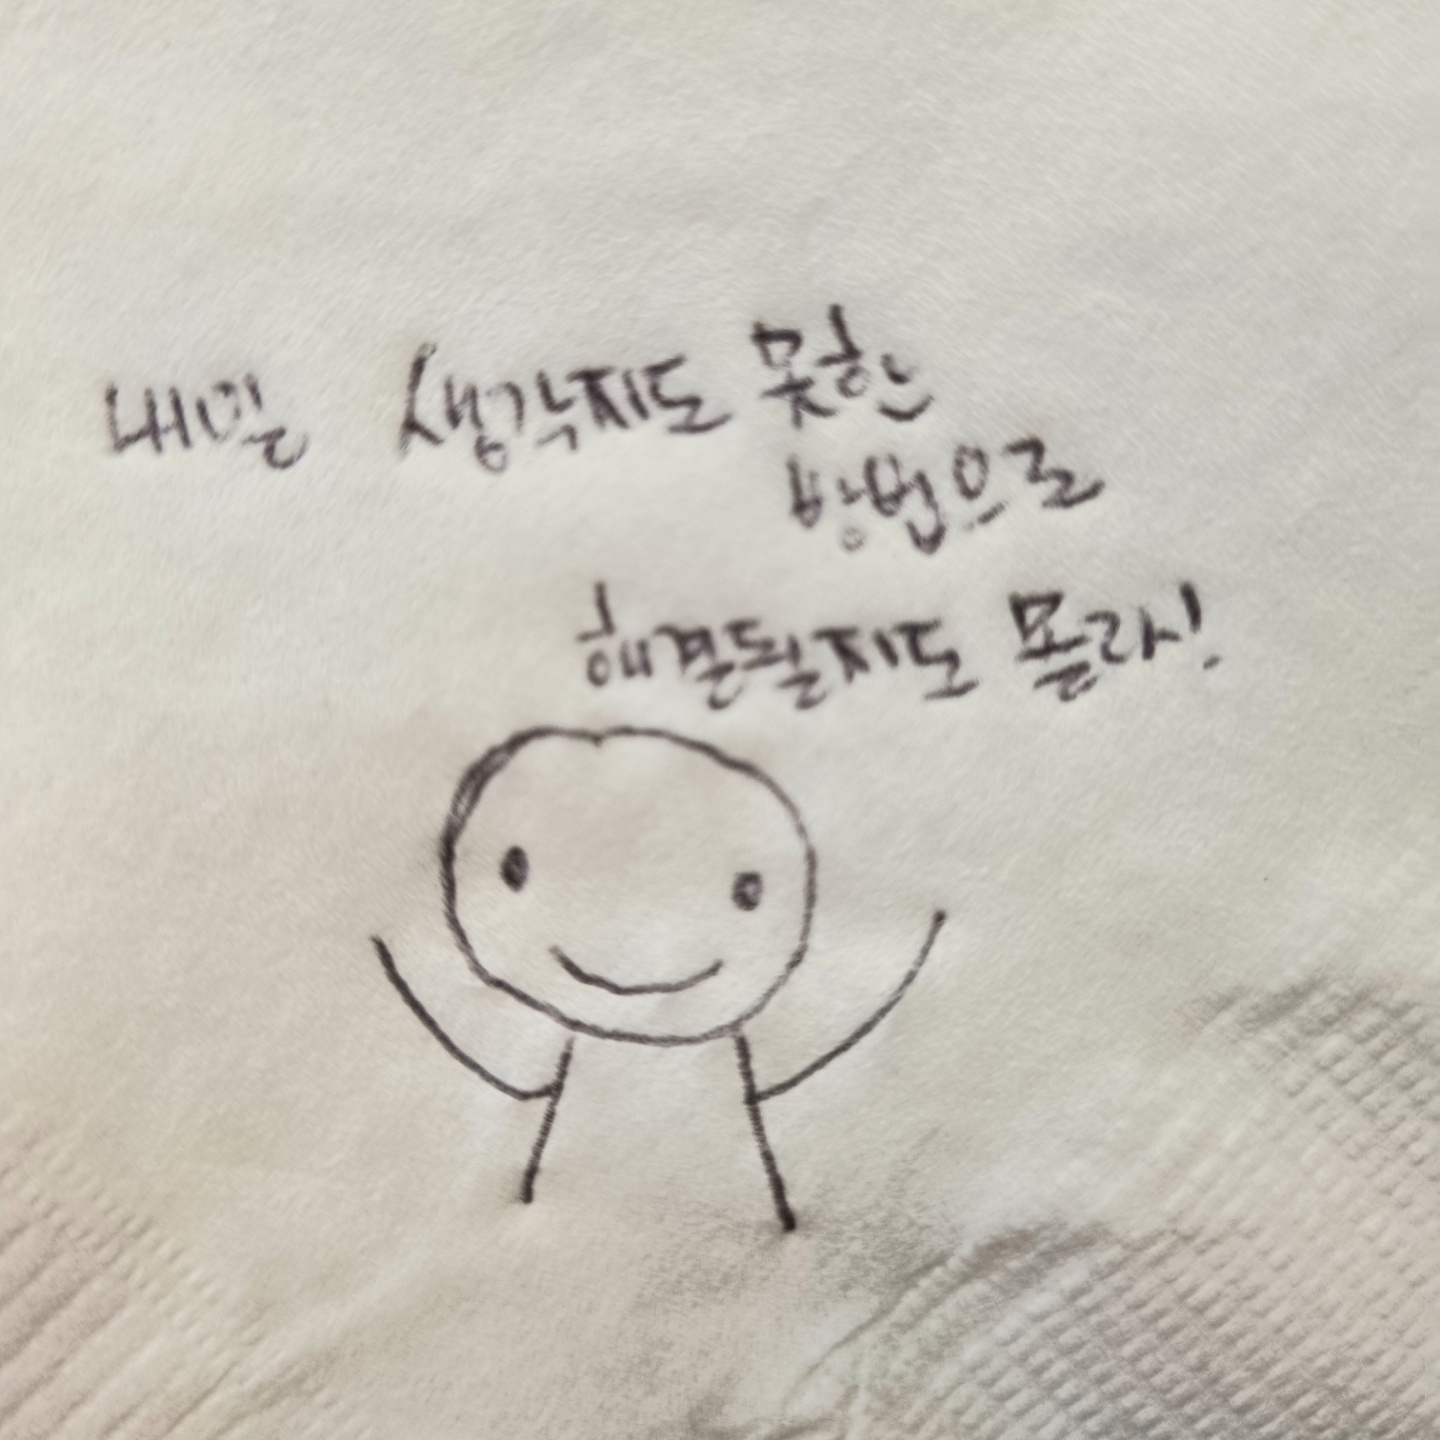 내일 생각지도 못한
방법으로
해결될지도 몰라!